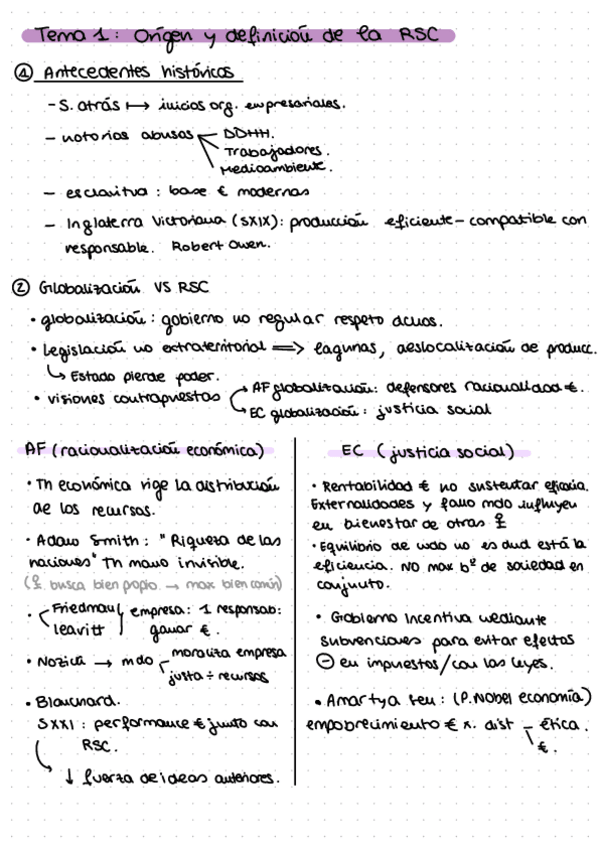 Tema 1: Origen y definición de la RSC
① Antecedentes históricos
- S. atrás ↦ inicios org. empresariales.
- notorios abusos DDHH.
Trabajadores.
Medioambiente.
- esclavitud : base € modernas
- Inglaterra Victoriana (SXIX): producción eficiente - compatible con
responsable. Robert Owen.
② Globalización VS RSC
• globalización: gobierno no regular respeto dchos.
• Legislación no extraterritorial ⟹ lagunas, deslocalización de producc.
↳ Estado pierde poder.
• visiones contrapuestas → AF globalización: defensores racionalidad €.
→ EC globalización: justicia social
AF (racionalización económica)
• Th económica rige la distribución
de los recursos.
• Adam Smith: "Riqueza de las
naciones" Th mano invisible.
( busca bien propio. → max bien común)
• Friedman empresa: 1 responsab:
leavitt ganar €.
• Nozick → mdo moraliza empresa
justa ÷ recursos
• Blanchard.
SXXI: performance € junto con
RSC.
↓ fuerza de ideas anteriores.
EC (justicia social)
• Rentabilidad € no sustentar eficacia.
Externalidades y fallo mdo influyen
en bienestar de otras
• Equilibrio de mdo no es dnd está la
eficiencia. NO max bº de sociedad en
conjunto.
• Gobierno Incentiva mediante
subvenciones para evitar efectos
⊖ en impuestos/con las leyes.
• Amartya Sen: (P. Nobel economía)
empobrecimiento € x. dist - ética.
€.